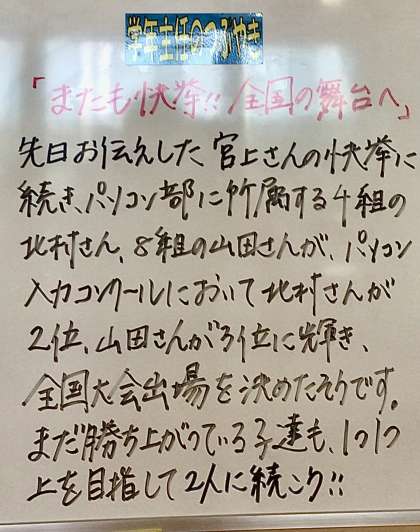 学年主任のつぶやき
「またも快挙!! 全国の舞台へ」
先日お伝えした宮上さんの快挙に
続き、パソコン部に所属する4組の
北村さん、8組の山田さんが、パソコン
入力コンクールにおいて北村さんが
2位、山田さんが3位に輝き、
全国大会出場を決めたそうです。
まだ勝ち上がっている子達も、1つ1つ
上を目指して2人に続こう!!